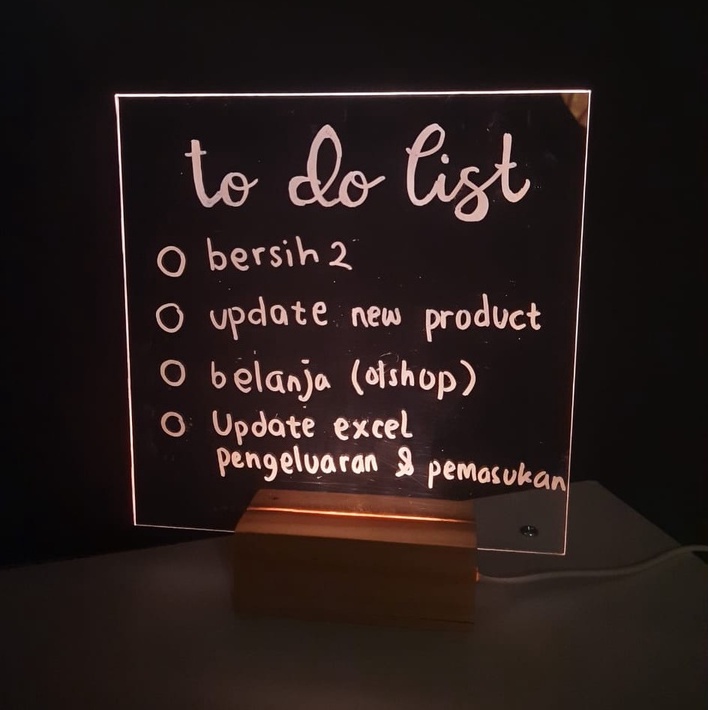 to do list
bersih2
update new product
belanja (olshop)
Update excel
pengeluaran & pemasukan